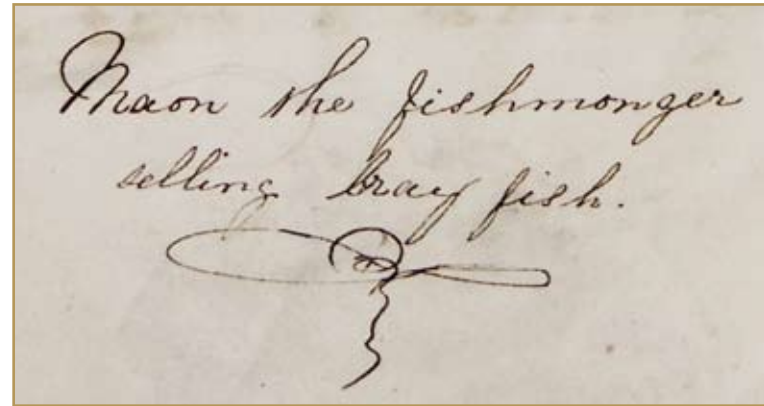 Maon the fishmonger
selling bray fish.